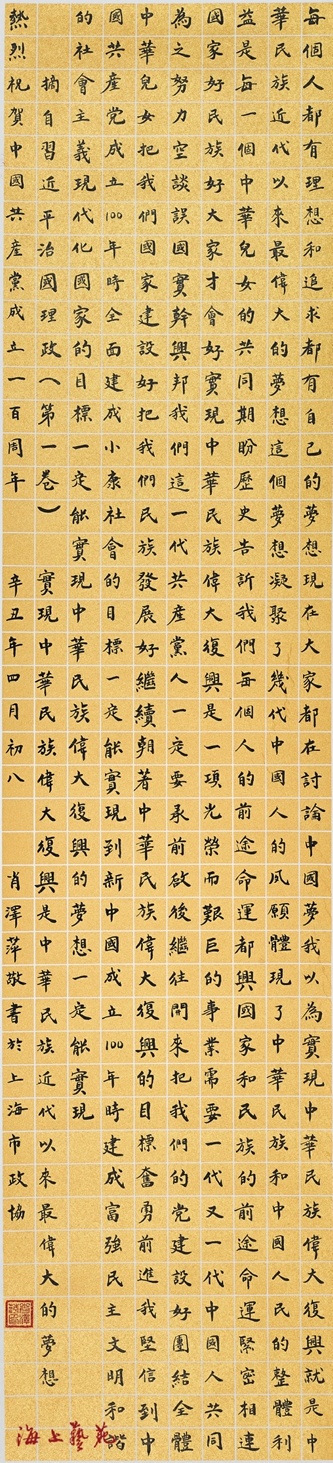 每個人都有理想和追求都有自己的夢想現在大家都在討論中國夢我以為實現中華民族偉大復興就是中
華民族近代以來最偉大的夢想這個夢想凝聚了幾代中國人的夙願體現了中華民族和中國人民的整體利
益是每一個中華兒女的共同期盼歷史告訴我們每個人的前途命運都與國家和民族的前途命運緊密相連
國家好民族好大家才會好實現中華民族偉大復興是一項光榮而艱巨的事業需要一代又一代中國人共同
為之努力空談誤國實幹興邦我們這一代共產黨人一定要承前啟後繼往開來把我們的黨建設好團結全體
中華兒女把我們國家建設好把我們民族發展好繼續朝著中華民族偉大復興的目標奮勇前進我堅信到中
國共產党成立100年時全面建成小康社會的目標一定能實現到新中國成立100年時建成富強民主文明和諧
的社會主義現代化國家的目標一定能實現中華民族偉大復興的夢想一定能實現
摘自習近平治國理政（第一卷） 實現中華民族偉大復興是中華民族近代以來最偉大的夢想
熱烈祝賀中國共産黨成立一百周年 辛丑年四月初八 肖澤萍敬書於上海市政協
海上藝苑